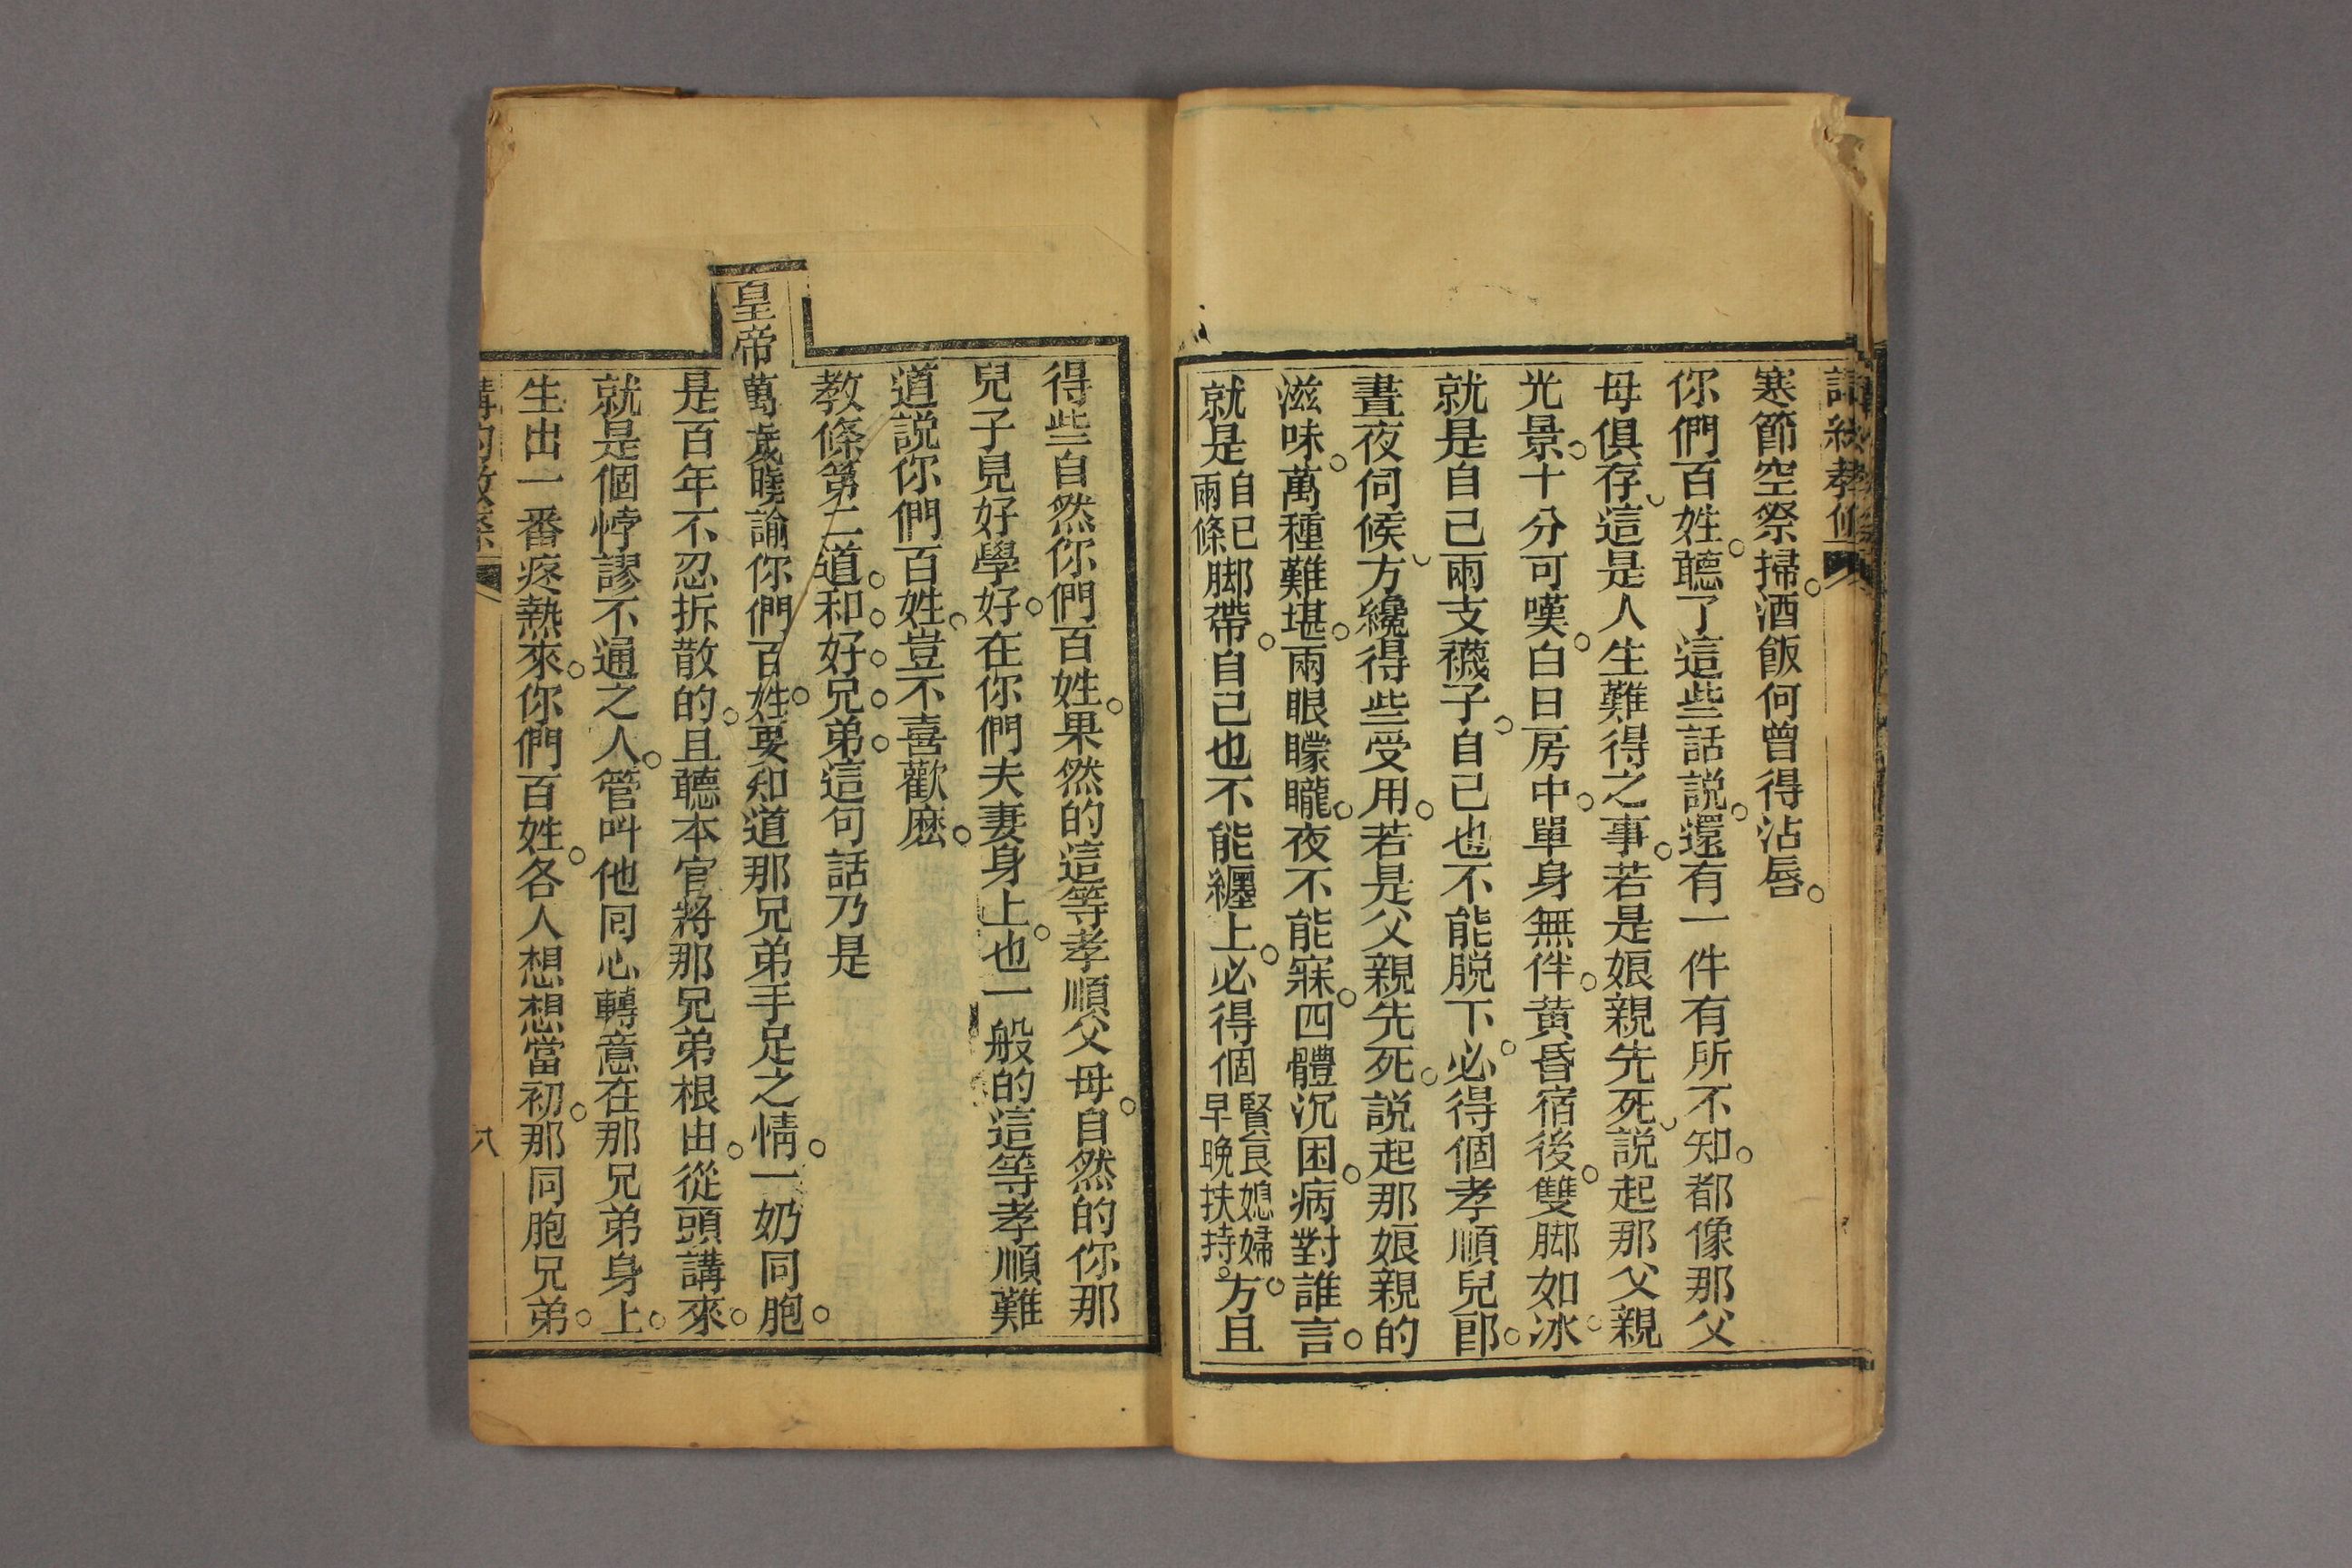 寒節空祭掃。酒飯何曾得沾唇。
你們百姓。聽了這些話説。還有一件有所不知。都像那父
母俱存、這是人生難得之事。若是娘親先死、説起那父親
光景。十分可嘆。白日房中。單身無伴。黄昏宿後。雙脚如冰。
就是自己兩支襪子。自己也不能脱下。必得個孝順兒郎。
晝夜伺候、方纔得些受用。若是父親先死。説起那娘親的
滋味。萬種難堪。兩眼矇矓。夜不能寐。四體沉困。病對誰言。
就是自已兩條脚帶。自己也不能纏上。必得個賢良媳婦。早晚扶持。方且
得些自然你們百姓。果然的這等孝順父母。自然的你那
兒子見好學好。在你們夫妻身上。也一般的這等孝順難
道説你們百姓。豈不喜歡麽。
教條第二道。和。好。兄。弟。這句話乃是
皇帝萬歲曉諭你們百姓。要知道那兄弟手足之情。一奶同胞。
是百年不忍拆散的。且聽本官將那兄弟根由。從頭講來。
就是個悖謬不通之人。管叫他回心轉意在那兄弟身上。
生出一番疼熱來。你們百姓。各人想想當初。那同胞兄弟。
八